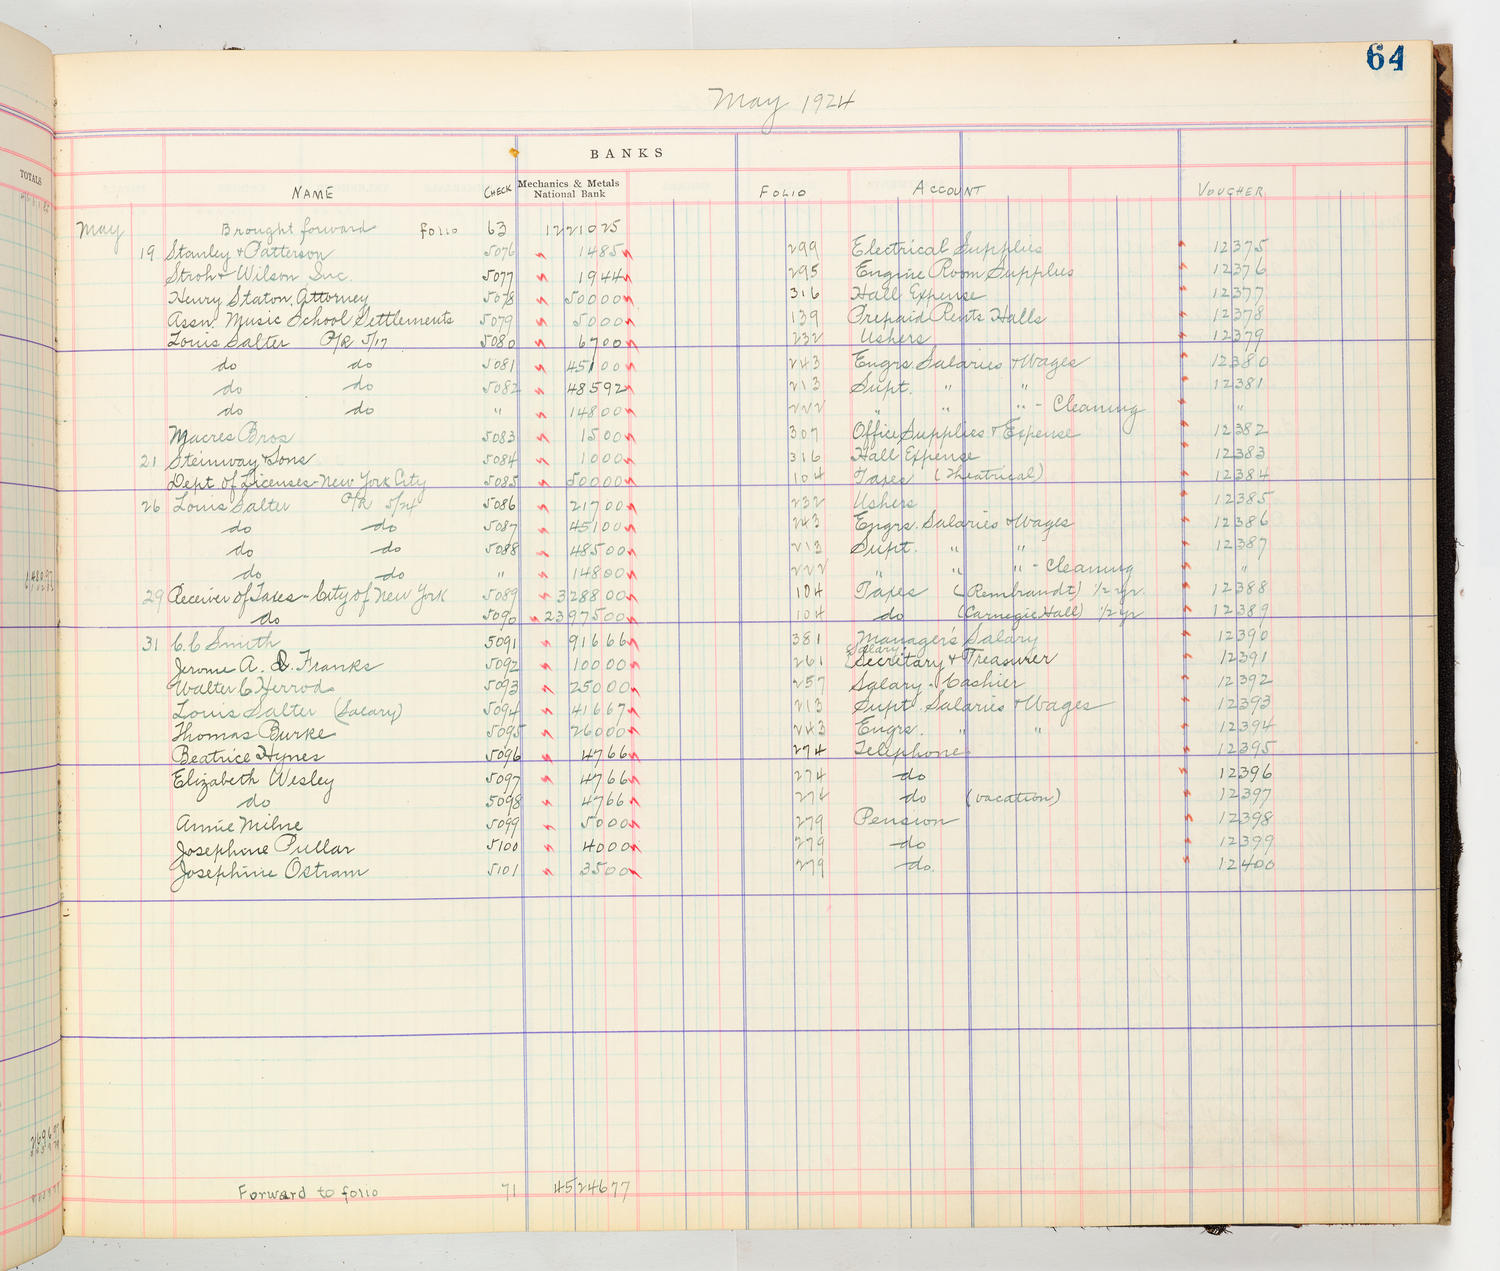 64
May 1924
TOTALS
BANKS
NAME CHECK Mechanics & Metals National Bank FOLIO ACCOUNT VOUCHER
May Brought forward Folio 63 1221025
19 Stanley & Patterson 5076 1485 299 Electrical Supplies 12375
Stroh & Wilson Inc. 5077 1944 295 Engine Room Supplies 12376
Henry Staton, Attorney 5078 50000 316 Hall Expense 12377
Assn. Music School Settlements 5079 5000 139 Prepaid Rents Halls 12378
Louis Salter P/R 5/17 5080 6700 232 Ushers 12379
do do 5081 45100 243 Engrs. Salaries & Wages 12380
do do 5082 48592 213 Supt. " " 12381
do do " 14800 222 " " " - Cleaning "
Macres Bros 5083 1500 307 Office Supplies & Expense 12382
21 Steinway & Sons 5084 1000 316 Hall Expense 12383
Dept of Licenses - New York City 5085 50000 104 Taxes (Theatrical) 12384
26 Louis Salter P/R 5/24 5086 21700 232 Ushers 12385
do do 5087 45100 243 Engrs. Salaries & Wages 12386
do do 5088 48500 213 Supt. " " 12387
do do " 14800 222 " " " - Cleaning "
29 Receiver of Taxes - City of New York 5089 328800 104 Taxes (Rembrandt) 1/2 yr. 12388
do 5090 2397500 104 do (Carnegie Hall) 1/2 yr 12389
31 C. C. Smith 5091 91666 381 Manager's Salary 12390
Jerome A. Q. Franks 5092 10000 261 Salary Secretary & Treasurer 12391
Walter C Herrod 5093 25000 257 Salary - Cashier 12392
Louis Salter (Salary) 5094 41667 213 Supt. Salaries & Wages 12393
Thomas Burke 5095 26000 243 Engrs. " " 12394
Beatrice Hynes 5096 4766 274 Telephone 12395
Elizabeth Wesley 5097 4766 274 do 12396
do 5098 4766 274 do (vacation) 12397
Annie Milne 5099 5000 279 Pension 12398
Josephine Pullar 5100 4000 279 do 12399
Josephine Ostram 5101 3500 279 do. 12400
Forward to folio 71 4524677